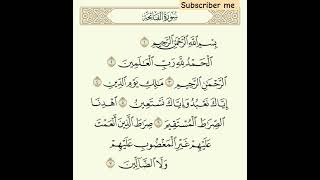 Subscriber me
سُورَةُ الفَاتِحَةِ
بِسْمِ اللَّهِ الرَّحْمَٰنِ الرَّحِيمِ ١
الْحَمْدُ لِلَّهِ رَبِّ الْعَالَمِينَ ٢
الرَّحْمَٰنِ الرَّحِيمِ ٣ مَالِكِ يَوْمِ الدِّينِ ٤
إِيَّاكَ نَعْبُدُ وَإِيَّاكَ نَسْتَعِينُ ٥ اهْدِنَا
الصِّرَاطَ الْمُسْتَقِيمَ ٦ صِرَاطَ الَّذِينَ أَنْعَمْتَ
عَلَيْهِمْ غَيْرِ الْمَغْضُوبِ عَلَيْهِمْ
وَلَا الضَّالِّينَ ٧